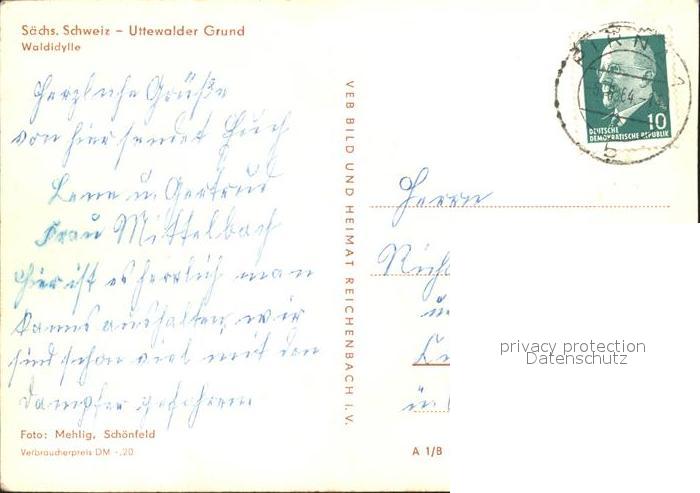 Sächs. Schweiz – Uttewalder Grund
Waldidylle
Herzliche Grüße
von hier sendet Euch
Lene u. Gertrud
Frau Mittelbach
Hier ist es herrlich man
kanns aushalten, wir
sind schon viel mit den
Dampfer gefahren
Foto: Mehlig, Schönfeld
Verbraucherpreis DM -,20
VEB BILD UND HEIMAT REICHENBACH I. V.
A 1/B
PIRNA
10
DEUTSCHE
DEMOKRATISCHE REPUBLIK
Herrn
privacy protection
Datenschutz